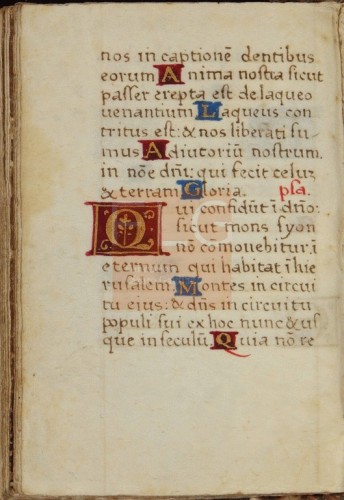 nos in captionē dentibus
eorum Anima nostra sicut
passer erepta est de laqueo
uenantium Laqueus con
tritus est: & nos liberati su-
mus Adiutoriū nostrum.
in nōe dñi: qui fecit celuz
& terram Gloria. psa.
Qui confidūt ī dño:
sicut mons syon
nō comouebitur. ī
eternum qui habitat ī hie
rusalem. Montes in circui
tu eius: & dñs in circuitu
populi sui ex hoc nunc & us
que in seculū. Quia nō re